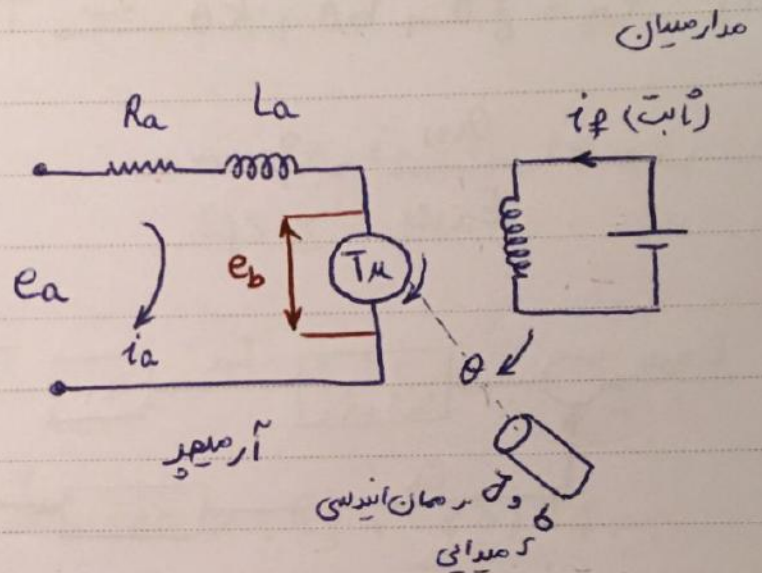 مدار میدان
Ra
La
if (ثابت)
ea
ia
eb
TM
θ
آرمیچر
J و b
ممان اینرسی
میرایی